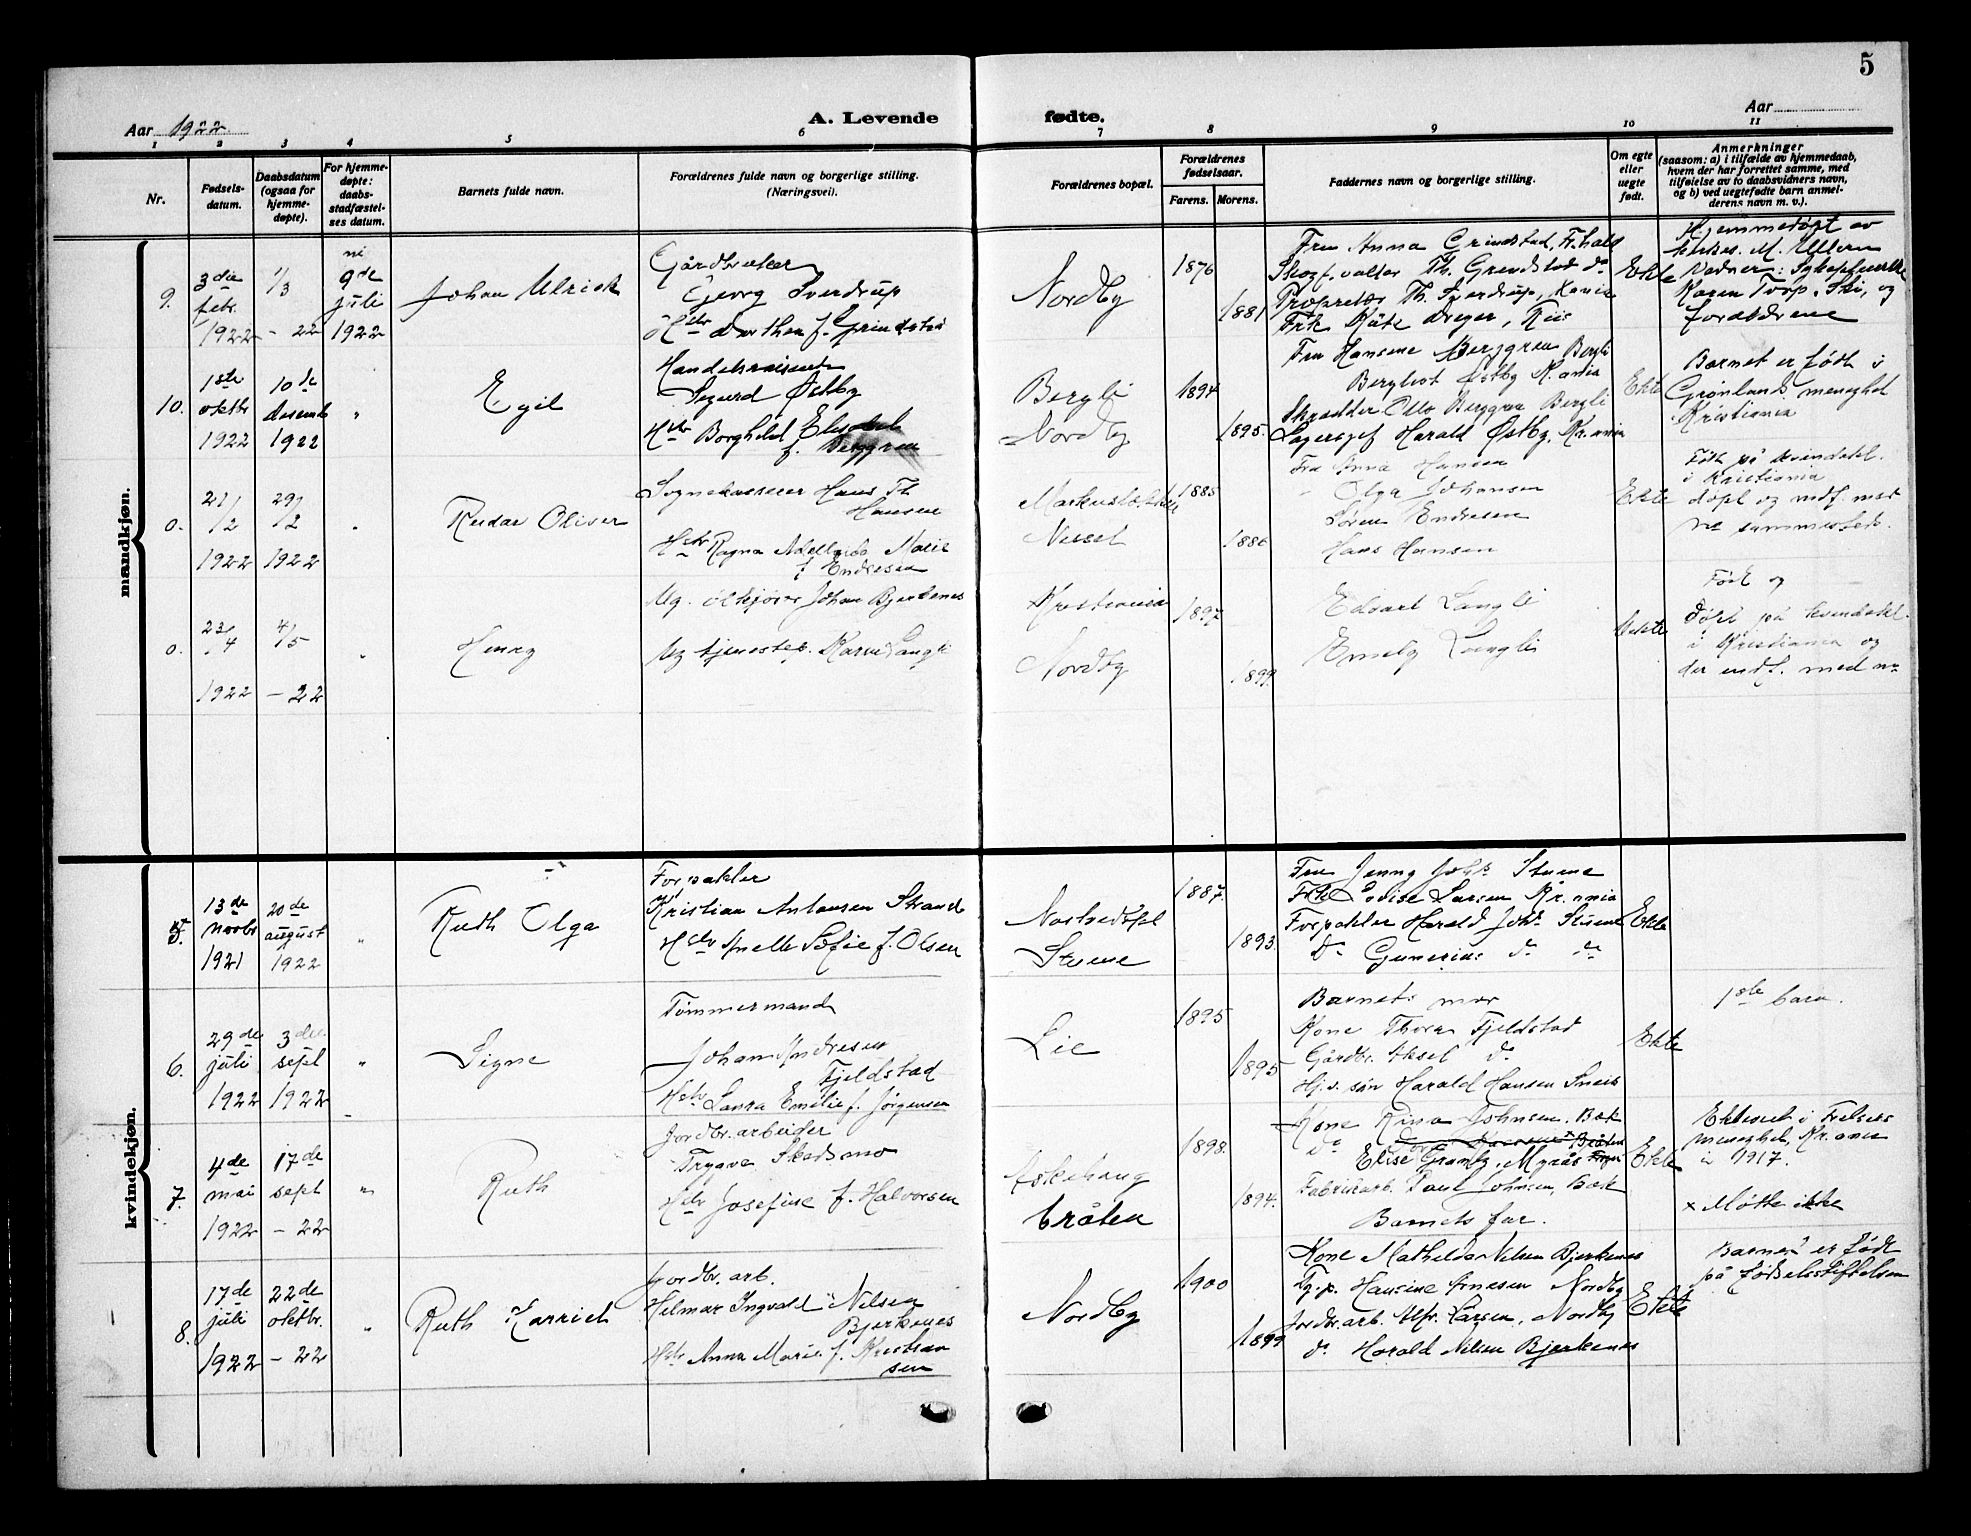 5
Aar 1922
A. Levende
fødte.
Aar
1 2 3 4 5 6 7 8 9 10 11
Nr.
Fødsels-
datum.
Daabsdatum
(ogsaa for
hjemme-
døpte).
For hjemme-
døpte:
daabs-
stadfæstel-
ses datum.
Barnets fulde navn.
Forældrenes fulde navn og borgerlige stilling.
(Næringsvei).
Forældrenes bopæl.
Forældrenes
fødselsaar.
Farens.
Morens.
Faddernes navn og borgerlige stilling.
Om egte
eller
uegte
født.
Anmerkninger
(saasom: a) i tilfælde av hjemmedaab,
hvem der har forrettet samme, med
tilføielse av to daabsvidners navn,
og b) ved uegtefødte barn anmel-
derens navn m. v.).
mandkjøn.
9.
3die
febr.
1922
1/3
- 22
9de
juli
1922
Johan Ulrich
Gårdbruker
Georg Sverdrup
Hstr Dorthea f. Grindstad
Nordby
1876
1881
Fru Anna Grindstad,
Th. Grindstad do
Proprietær Th. Sverdrup,
Frk
Ekte
Hjemmedøpt av
M. Ullern
Karen Torp, Ski, og
forældrene
10.
1ste
oktbr
1922
10de
desemb
1922
"
Egil
Handelsreisende
Sigurd Østby
Hstr Borghild Elisabet
f. Berggren
Bergli
Nordby
1894
1895.
Fru Hansine Berggren Bergli
Bergliot Østby Kr.ania
Skrædder Otto Berggren Bergli
Lagersjef Harald Østby, Kr.ania
Ekte
Barnet er født i
Grønlands menighet
Kristiania
0.
21/
/2
1922
29/
/2
1922
"
Reidar Oliver
Sognekasserer Hans Th
Hansen
Hstr Ragna Marie
f Endresen
Nesset
1885
1886
Fru Anna Hansen
" Olga Johansen
Søren Endresen
Hans Hansen
Ekte
Født på kvindekl.
i Kristiania
døpt og indf. med
no sammesteds.
0.
23/
/4
1922
4/5
- 22
"
Henry
Ug. Johan Bjerkenes
Ug tjenestep. Langli
Kristiania
Nordby
1897
1899
Edvart Langli
Emely Langli
Født og
døpt på kvindekl.
i Kristiania og
der indf. med no
kvindekjøn.
5.
13de
novbr
1921
20de
august
1922
"
Ruth Olga
Forpakter
Kristian Antonsen Strand
Hstr Anette Sofie f. Olsen
Stuene
1887.
1893.
Fru Jenny Johs Stuene
Frk Lovise Larsen Kr.ania
Forpakter Harald Johs Stuene
Do Gunerius do do
Ekte
6.
29de
juli
1922
3die
sept
1922
"
Signe
Tømmermand
Johan Andresen
Fjeldstad
Hstr Laura Emilie f. Jørgensen
Lie
1895
1895
Barnets mor
Kone Thora Fjeldstad
Gårdbr. Aksel do
Hj.v. søn Harald Hansen
Ekte
1ste barn.
7.
4de
mai
1922
17de
sept
- 22
"
Ruth
Jordbr.arbeider
Trygve Skedsmo
Hstr Josefine f. Halvorsen
Askehaug
bråten
1898.
1894.
Kone Rina Johnsen. Bæk
Do
Elise Grantz, Myrås
Fabrikarb. Paul Johnsen, Bæk
Barnets far.
Ekte
Ekteviet i Frelsers
menighet, Kr.ania
i 1917.
x Møtte ikke
8.
17de
juli
1922
22de
oktbr.
- 22
"
Ruth Harriet
Jordbr. arb.
Hilmar Ingvald Nilsen
Bjerkenes
Hstr Anna Marie f. Kristian
sen
Nordby
1900
1899
Kone Mathilde Nilsen Bjerkenes
Tj.p. Hansine Arnesen Nordby
Jordbr.arb. Alfr. Larsen, Nordby
do Harald Nilsen Bjerkenes
Ekte
Barnet er født
på fødselsstiftelsen